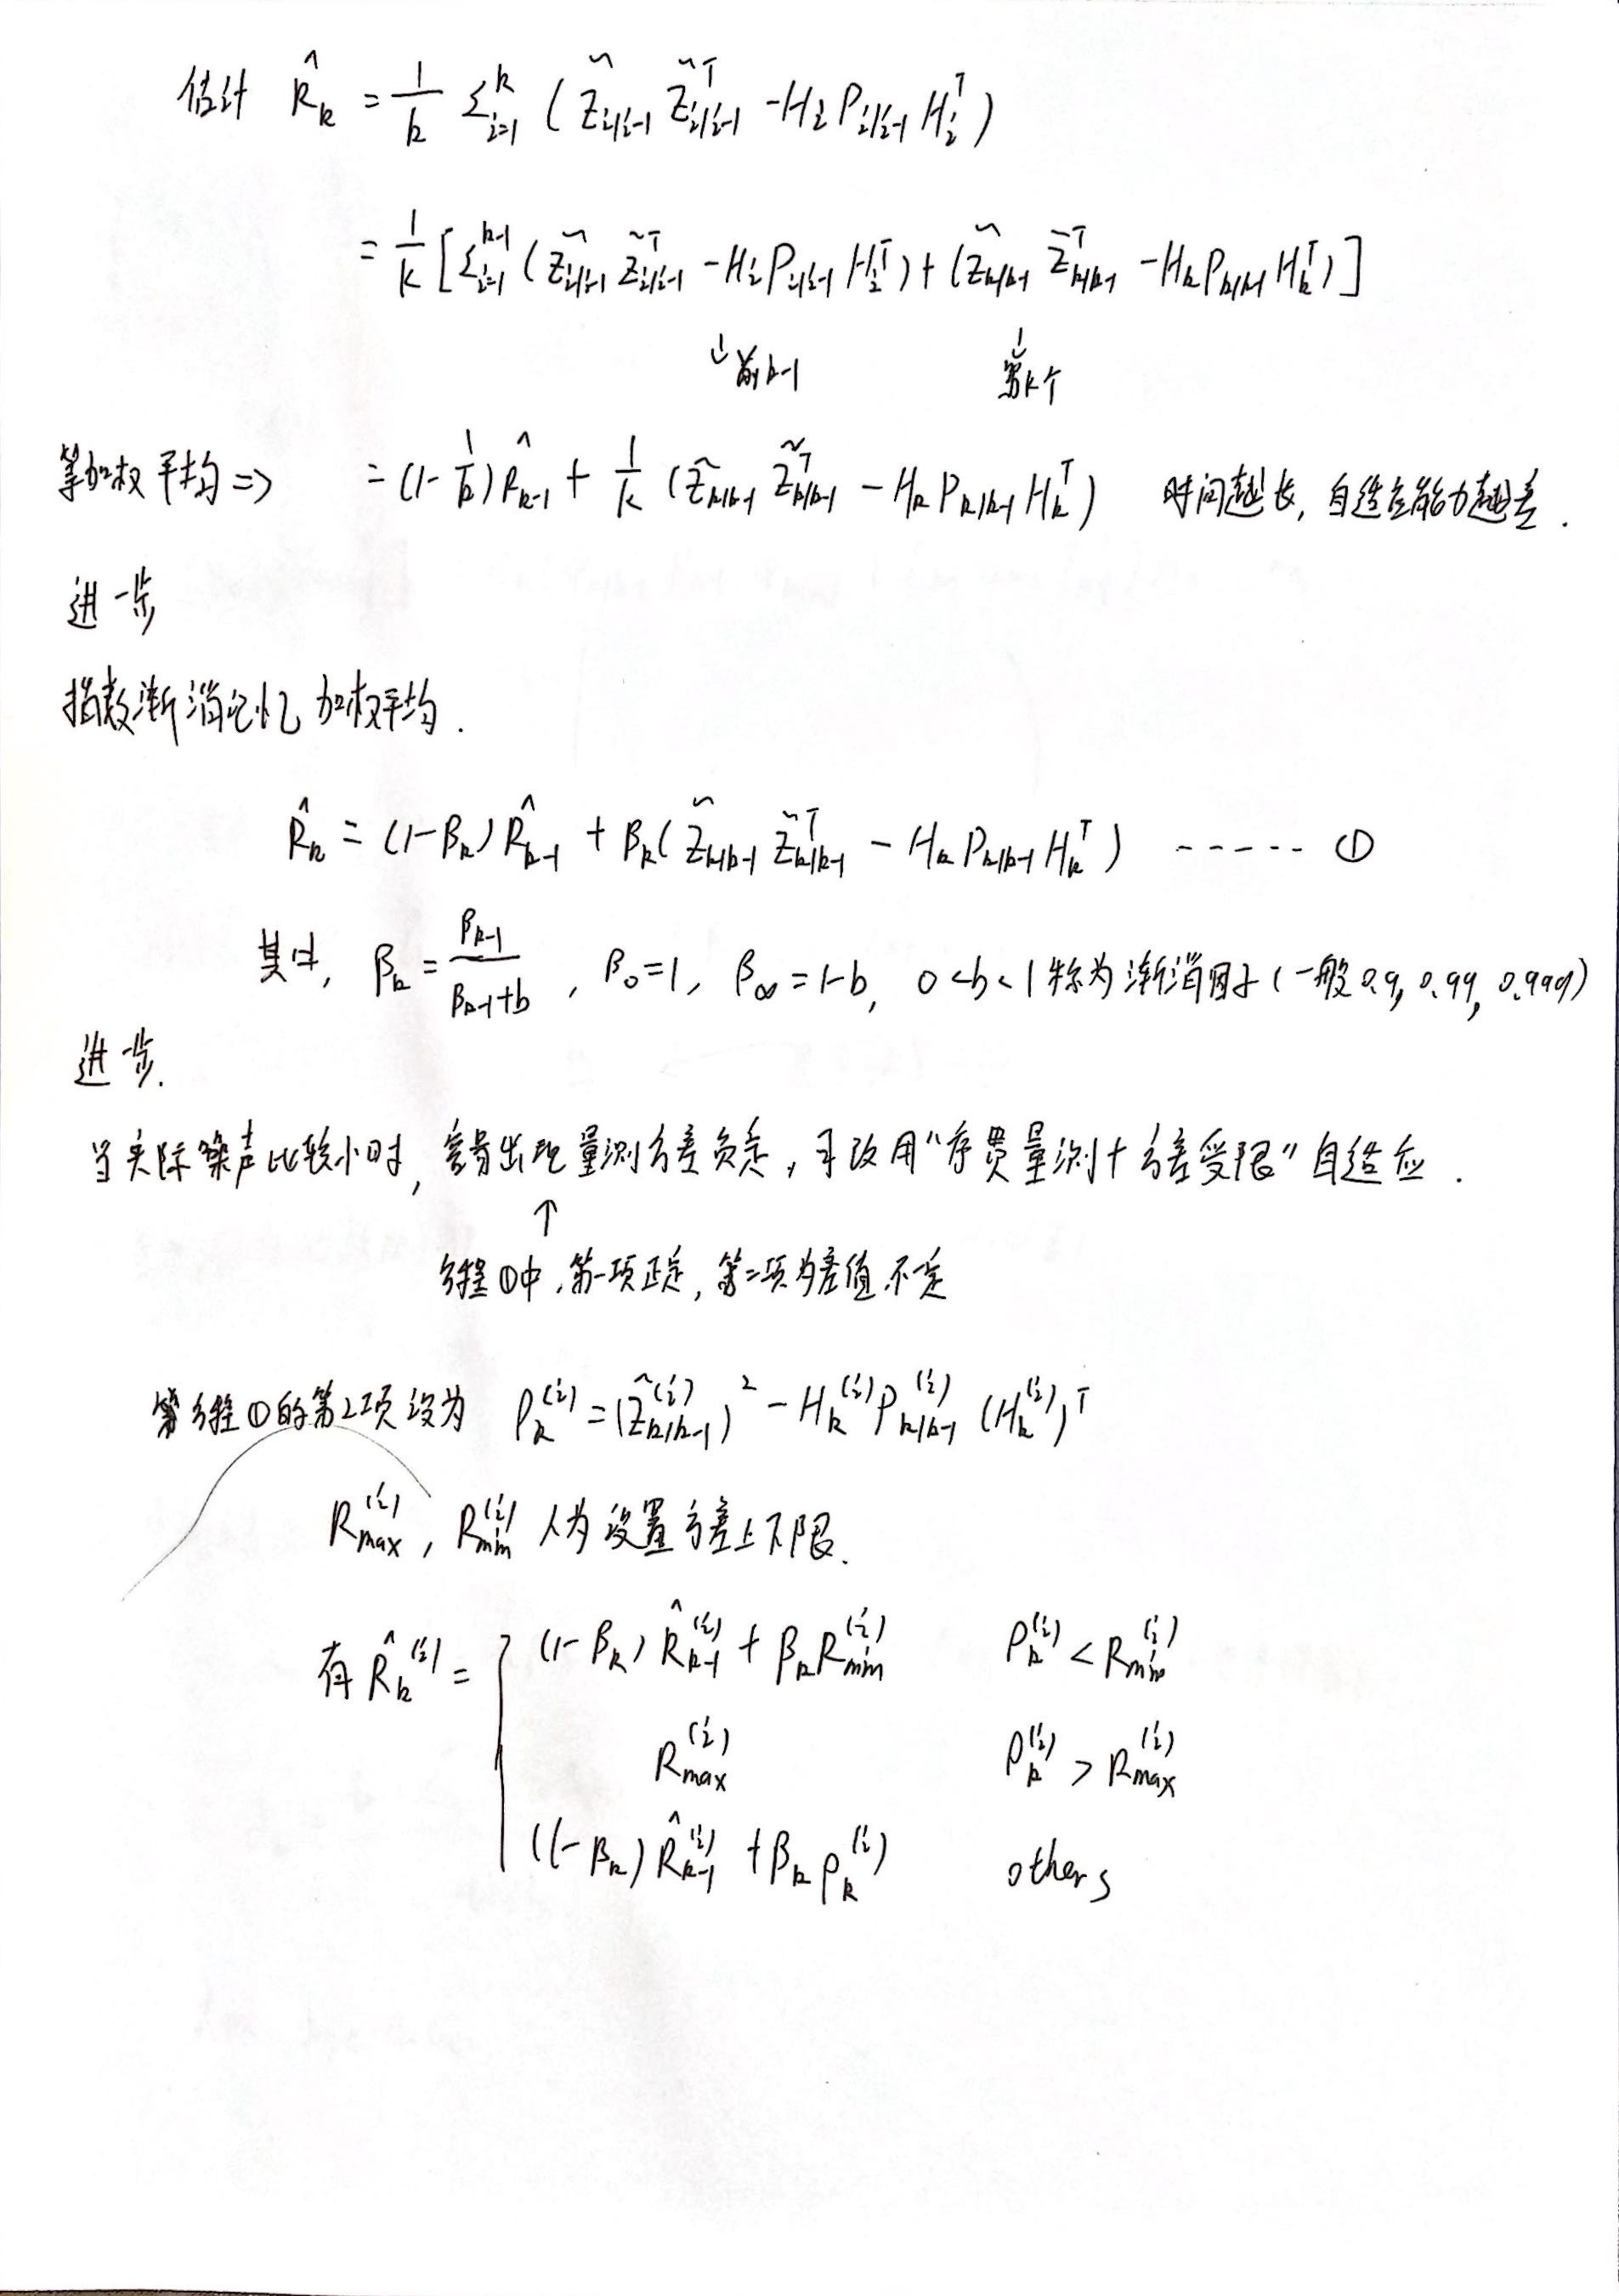 估计 R̂_k = 1/k Σ_{i=1}^{k} ( Z̃_{i/i-1} Z̃_{i/i-1}^T - H_i P_{i/i-1} H_i^T )
= 1/k [ Σ_{i=1}^{k-1} ( Z̃_{i/i-1} Z̃_{i/i-1}^T - H_i P_{i/i-1} H_i^T ) + ( Z̃_{k/k-1} Z̃_{k/k-1}^T - H_k P_{k/k-1} H_k^T ) ]
↓前k-1 ↓第k个
等加权平均 => = (1 - 1/k) R̂_{k-1} + 1/k ( Z̃_{k/k-1} Z̃_{k/k-1}^T - H_k P_{k/k-1} H_k^T ) 时间越长, 自适应能力越差.
进一步
指数渐消记忆加权平均.
R̂_k = (1-β_k) R̂_{k-1} + β_k ( Z̃_{k/k-1} Z̃_{k/k-1}^T - H_k P_{k/k-1} H_k^T ) ------ ①
其中, β_k = β_{k-1}/(β_{k-1}+b) , β_0=1, β_∞=1-b, 0<b<1 称为渐消因子 (一般 0.9, 0.99, 0.999)
进一步.
当实际噪声比较小时, 容易出现量测方差负定, 可改用"序贯量测+方差受限"自适应.
↑
方程①中, 第一项正定, 第二项为差值 不定
第方程①的第2项设为 ρ_k^{(i)} = (Z̃_{k/k-1}^{(i)})^2 - H_k^{(i)} P_{k/k-1}^{(i)} (H_k^{(i)})^T
R_max^{(i)}, R_min^{(i)} 人为设置方差上下限.
有 R̂_k^{(i)} = { (1-β_k) R̂_{k-1}^{(i)} + β_k R_min^{(i)} ρ_k^{(i)} < R_min^{(i)}
R_max^{(i)} ρ_k^{(i)} > R_max^{(i)}
(1-β_k) R̂_{k-1}^{(i)} + β_k ρ_k^{(i)} others